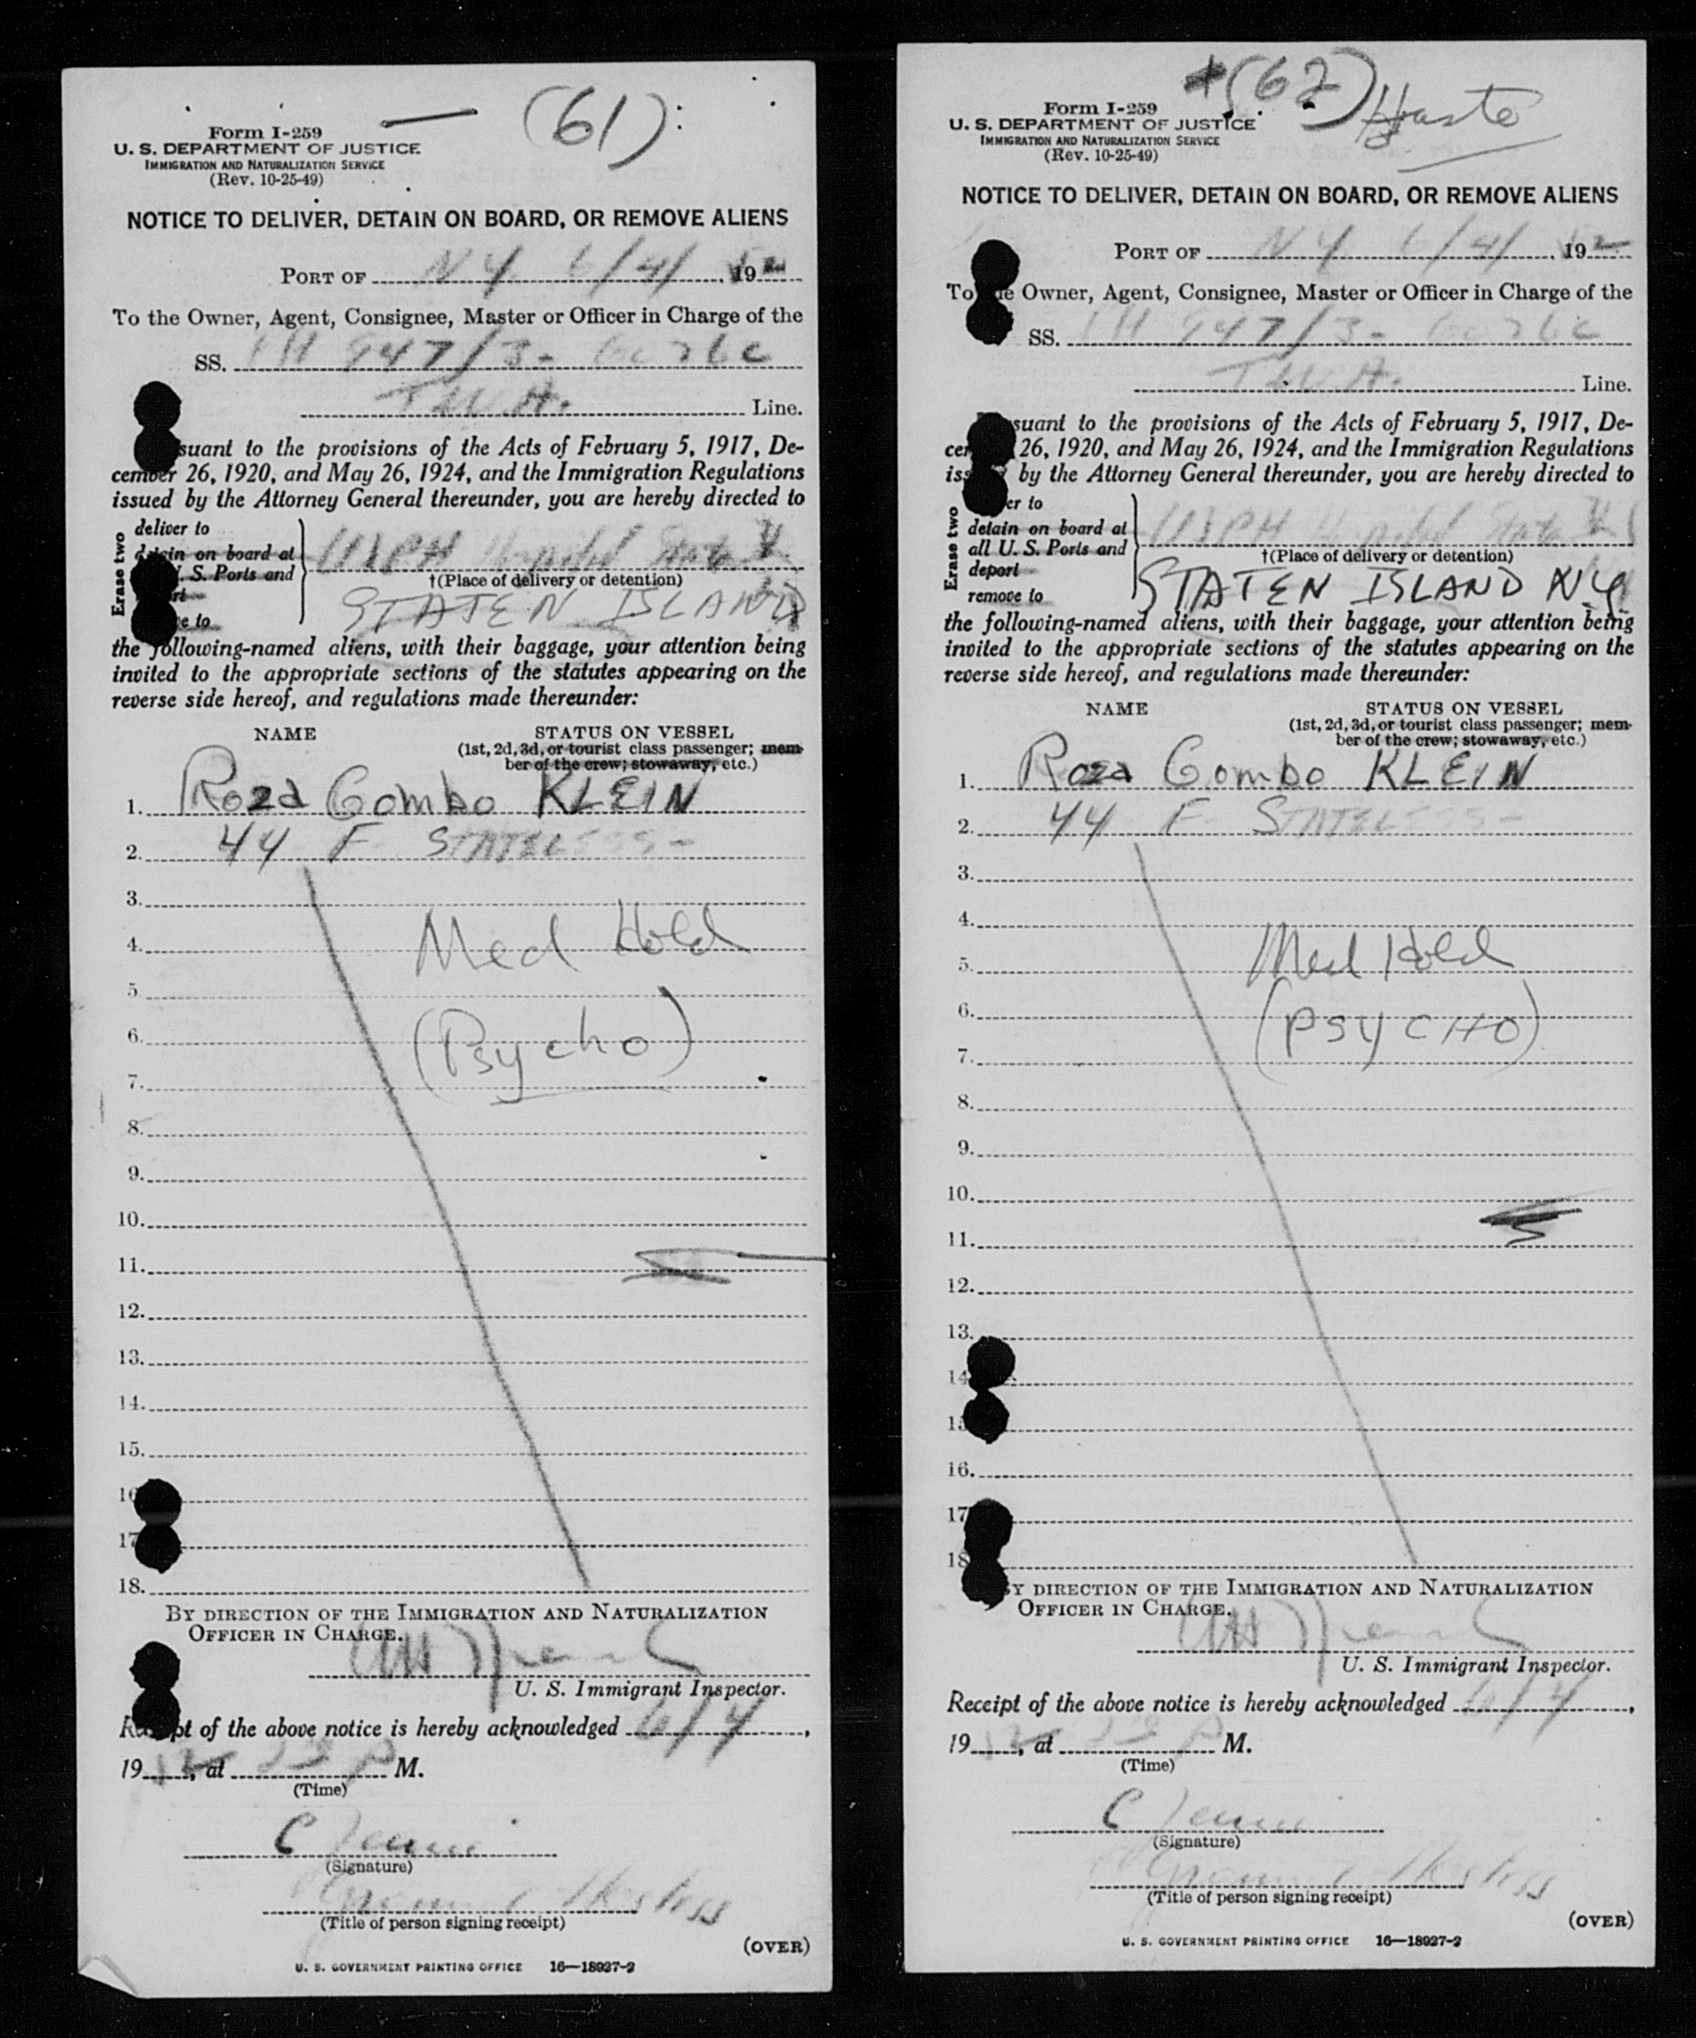 (61)
Form I-259
U. S. DEPARTMENT OF JUSTICE
IMMIGRATION AND NATURALIZATION SERVICE
(Rev. 10-25-49)
NOTICE TO DELIVER, DETAIN ON BOARD, OR REMOVE ALIENS
PORT OF NY 6/4/ 1952
To the Owner, Agent, Consignee, Master or Officer in Charge of the
SS. 947/3-
T.W.A. Line.
suant to the provisions of the Acts of February 5, 1917, De-
cember 26, 1920, and May 26, 1924, and the Immigration Regulations
issued by the Attorney General thereunder, you are hereby directed to
Erase two
deliver to
detain on board at
U. S. Ports and
USPH Hospital
†(Place of delivery or detention)
STATEN ISLAND
the following-named aliens, with their baggage, your attention being
invited to the appropriate sections of the statutes appearing on the
reverse side hereof, and regulations made thereunder:
NAME STATUS ON VESSEL
(1st, 2d, 3d, or tourist class passenger; mem-
ber of the crew; stowaway, etc.)
1. Roza Gombo KLEIN
2. 44 F STATELESS-
3.
4. Med Hold
5.
6. (Psycho)
7.
8.
9.
10.
11.
12.
13.
14.
15.
16
17
18.
BY DIRECTION OF THE IMMIGRATION AND NATURALIZATION
OFFICER IN CHARGE.
U. S. Immigrant Inspector.
Receipt of the above notice is hereby acknowledged 6/4,
1952, at P M.
(Time)
C
(Signature)
Hostess
(Title of person signing receipt)
(OVER)
U. S. GOVERNMENT PRINTING OFFICE 16—18927-2
(62) Haste
Form I-259
U. S. DEPARTMENT OF JUSTICE
IMMIGRATION AND NATURALIZATION SERVICE
(Rev. 10-25-49)
NOTICE TO DELIVER, DETAIN ON BOARD, OR REMOVE ALIENS
PORT OF NY 6/4/ 1952
To the Owner, Agent, Consignee, Master or Officer in Charge of the
SS. 947/3-
T.W.A. Line.
suant to the provisions of the Acts of February 5, 1917, De-
cember 26, 1920, and May 26, 1924, and the Immigration Regulations
issued by the Attorney General thereunder, you are hereby directed to
Erase two
deliver to
detain on board at
all U. S. Ports and
deport
remove to
USPH Hospital
†(Place of delivery or detention)
STATEN ISLAND NY
the following-named aliens, with their baggage, your attention being
invited to the appropriate sections of the statutes appearing on the
reverse side hereof, and regulations made thereunder:
NAME STATUS ON VESSEL
(1st, 2d, 3d, or tourist class passenger; mem-
ber of the crew; stowaway, etc.)
1. Roza Gombo KLEIN
2. 44 F STATELESS-
3.
4.
5. Med Hold
6.
7. (PSYCHO)
8.
9.
10.
11.
12.
13.
14
15
16.
17
18
BY DIRECTION OF THE IMMIGRATION AND NATURALIZATION
OFFICER IN CHARGE.
U. S. Immigrant Inspector.
Receipt of the above notice is hereby acknowledged 6/4,
1952, at P M.
(Time)
C
(Signature)
Hostess
(Title of person signing receipt)
(OVER)
U. S. GOVERNMENT PRINTING OFFICE 16—18927-2